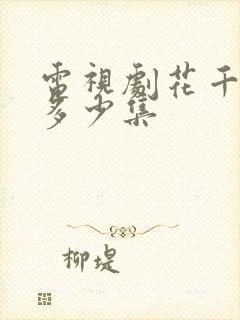 電視劇花千
多少集
柳堤